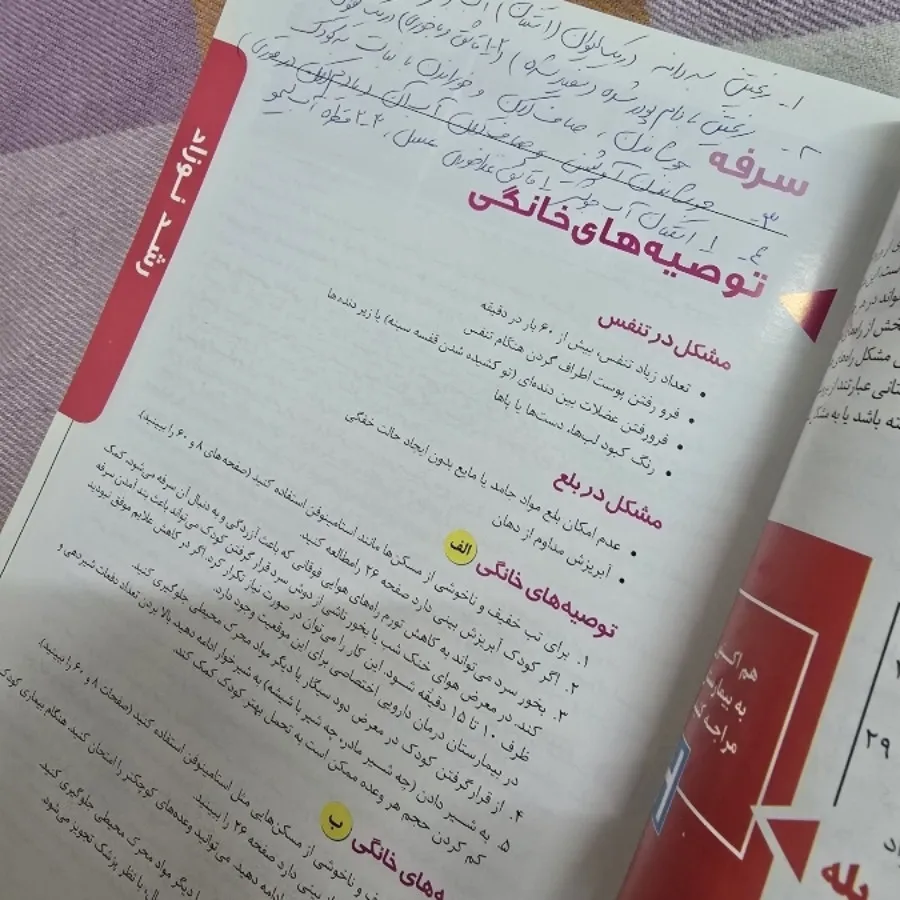 ۱- ریختن به دانه
ریختن بادام پودر شده
جوشاندن، صاف کردن و خوراندن با نبات به کودک
۴- انتقال آب جوش، ۱ قاشق غذاخوری عسل، ۴-۲ قطره آب لیمو
سرفه
توصیه‌های خانگی
رشد نوزاد
مشکل در تنفس
• تعداد زیاد تنفس، بیش از ۶۰ بار در دقیقه
• فرو رفتن پوست اطراف گردن هنگام تنفس
• فرورفتن عضلات بین دنده‌ای (تو کشیده شدن قفسه سینه) یا زیر دنده‌ها
• رنگ کبود لب‌ها، دست‌ها یا پاها
مشکل در بلع
• عدم امکان بلع مواد جامد یا مایع بدون ایجاد حالت خفگی
• آبریزش مداوم از دهان
توصیه‌های خانگی الف
۱. برای تب خفیف و ناخوشی از مسکن‌ها مانند استامینوفن استفاده کنید (صفحه‌های ۸ و ۶۰ را ببینید).
۲. اگر کودک آبریزش بینی دارد صفحه ۲۶ را مطالعه کنید.
۳. بخور سرد می‌تواند به کاهش تورم راه‌های هوایی فوقانی که باعث آزردگی و به دنبال آن سرفه می‌شود، کمک
کنند. در معرض هوای خنک شب یا بخور ناشی از دوش سرد قرار گرفتن کودک می‌تواند باعث بند آمدن سرفه
ظرف ۱۰ تا ۱۵ دقیقه شود. این کار را می‌توان در صورت نیاز تکرار کرد. اگر در کاهش علایم موفق نبودید
در بیمارستان درمان دارویی اختصاصی برای این موقعیت وجود دارد.
۴. از قرار گرفتن کودک در معرض دود سیگار یا دیگر مواد محرک محیطی جلوگیری کنید.
۵. به شیر دادن (چه شیر مادر، چه شیر با شیشه) به شیرخوار ادامه دهید. بالا بردن تعداد دفعات شیردهی و
کم کردن حجم هر وعده ممکن است به تحمل بهتر کودک کمک کند.
ه‌های خانگی ب
ف و ناخوشی از مسکن‌هایی مثل استامینوفن استفاده کنید (صفحات ۸ و ۶۰ را ببینید).
بینی دارد صفحه ۲۶ را ببینید.
ادامه دهید. می‌توانید وعده‌های کوچکتر را امتحان کنید. هنگام بیماری کودک
یا دیگر مواد محرک محیطی جلوگیری کنید.
ال، با نظر پزشک تجویز می‌شود.
مشکل راه‌های
تانی عبارتند از
ته باشد یا به مشکل
هم اکن
به بیمارس
مراجعه کنی
۲۹
بله